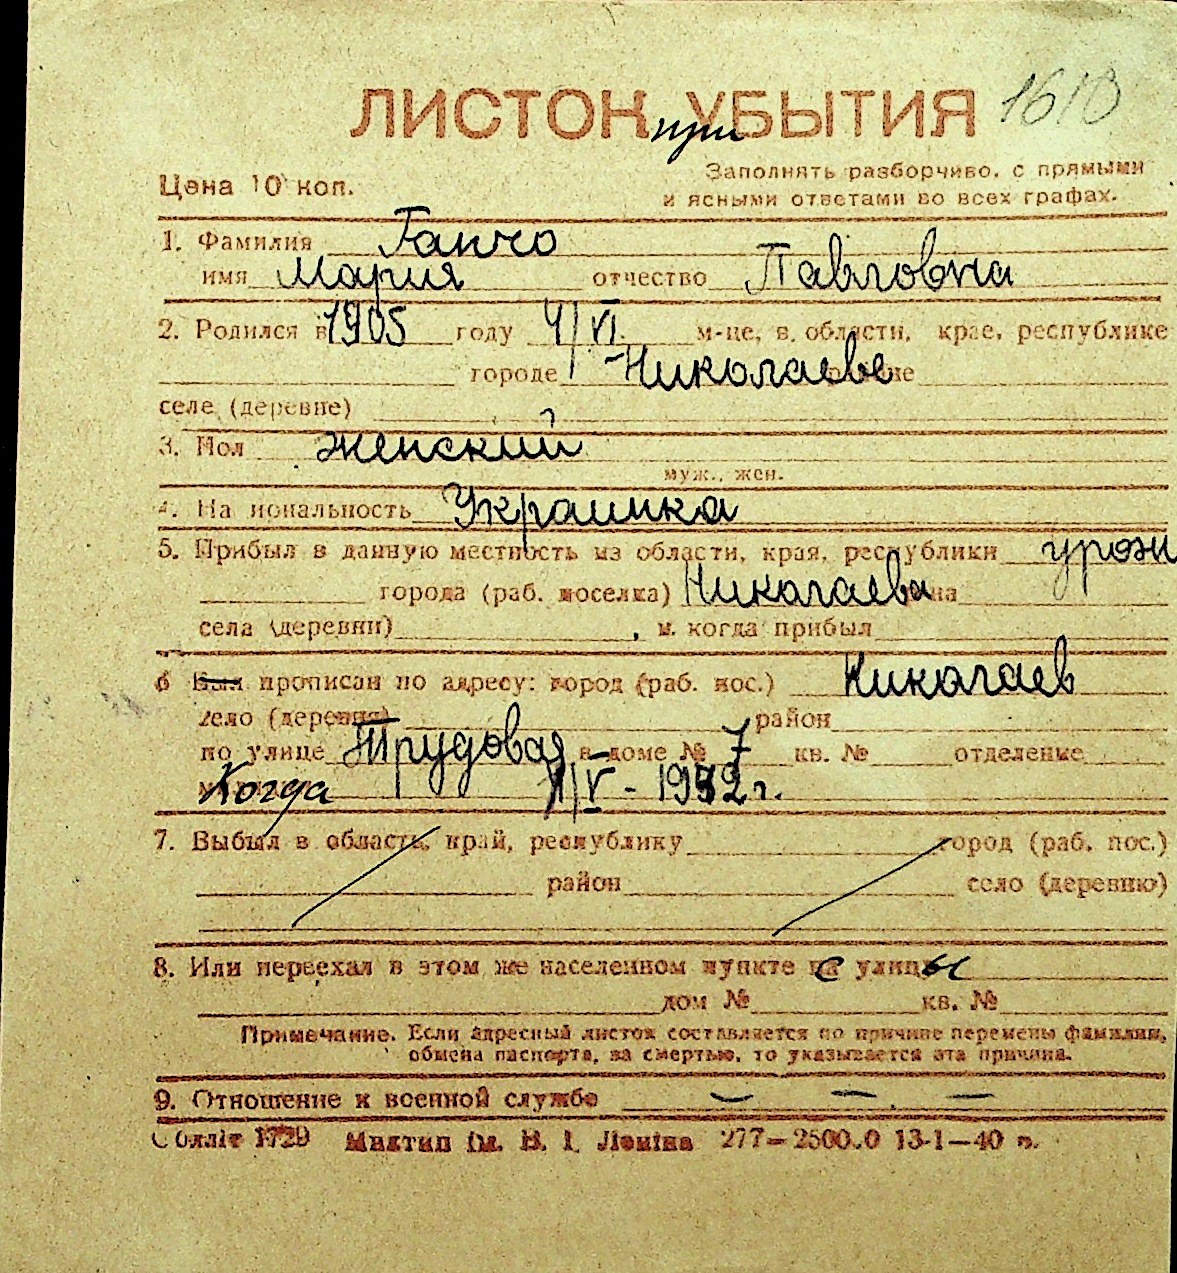 1610
ЛИСТОК УБЫТИЯ
при
Цена 10 коп.
Заполнять разборчиво, с прямыми
и ясными ответами во всех графах.
1. Фамилия Ганчо
имя Мария отчество Павловна
2. Родился в 1905 году 4/VI. м-це, в области, крае, республике
городе Николаеве районе
селе (деревне)
3. Пол женский
муж., жен.
4. Национальность Украинка
5. Прибыл в данную местность из области, края, республики урож
города (раб. поселка) Николаева
села (деревни) , и когда прибыл
6 Был прописан по адресу: город (раб. пос.) Николаев
село (деревня) район
по улице Трудовая в доме № 7 кв. № отделение
Когда 1/V - 1942 г.
7. Выбыл в область, край, республику город (раб. пос.)
район село (деревню)
8. Или переехал в этом же населенном пункте с улицы
дом № кв. №
Примечание. Если адресный листок составляется по причине перемены фамилии,
обмена паспорта, за смертью, то указывается эта причина.
9. Отношение к военной службе — — —
Облліт 1729 Миктип ім. В. І. Леніна 277—2500.0 13-1—40 р.